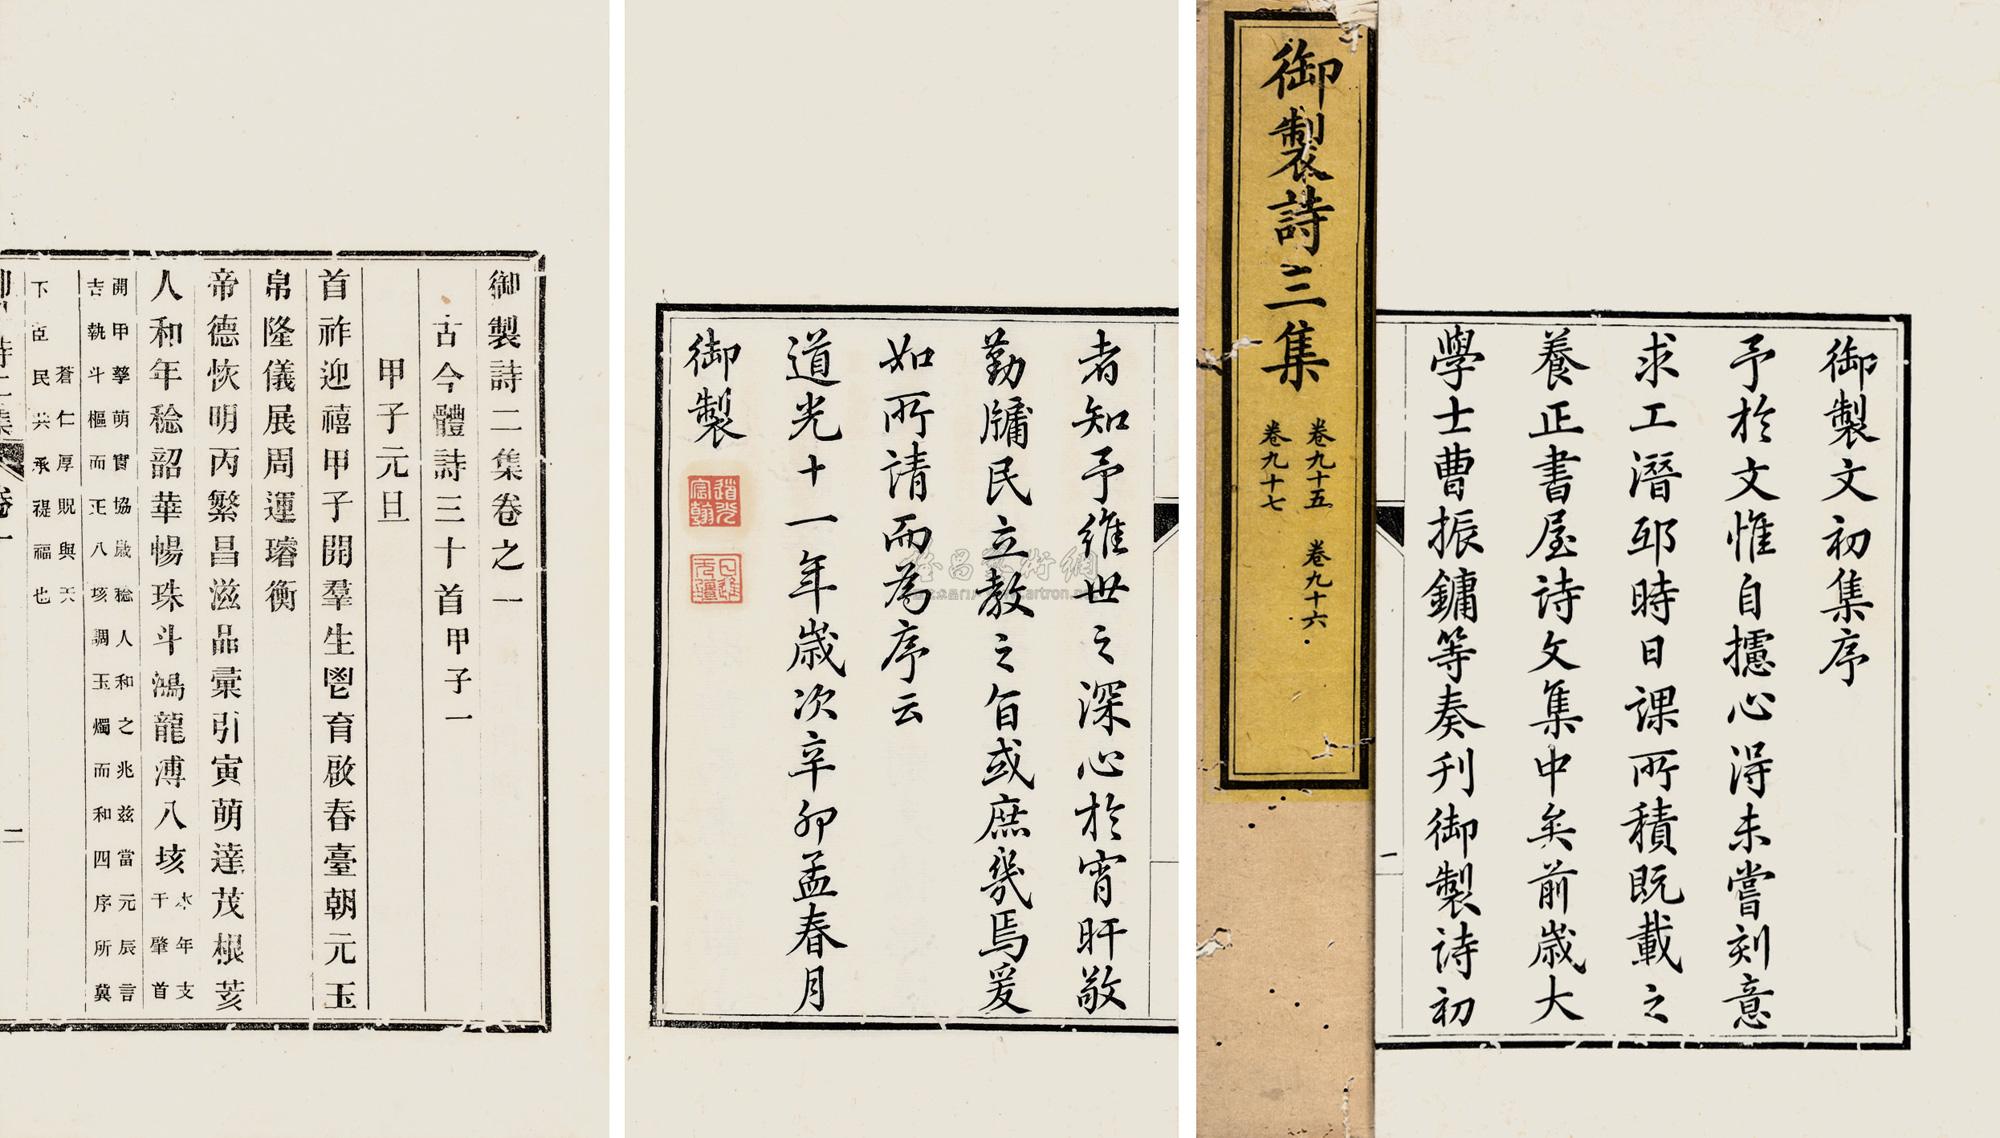 御製文初集序
予於文惟自攄心得未嘗刻意
求工潛邸時日課所積既載之
養正書屋詩文集中矣前歲大
學士曹振鏞等奏刊御製詩初
御製詩三集
卷九十五 卷九十六
卷九十七
者知予維世之深心於宵旰敬
勤牖民立教之旨或庶幾焉爰
如所請而為序云
道光十一年歲次辛卯孟春月
御製
道光
宸翰
御製詩二集卷之一
古今體詩三十首甲子一
甲子元旦
首祚迎禧甲子開羣生鬯育啟春臺朝元玉
帛隆儀展周運璿衡
帝德恢明丙繁昌滋品彙引寅萌達茂根荄
人和年稔韶華暢珠斗鴻龍溥八垓
水年支
干肇首
開甲孳萌實協歲稔人和之兆兹當元辰言
吉執斗樞而正八垓調玉燭而和四序所冀
蒼仁厚貺與天
下臣民共承禔福也
二